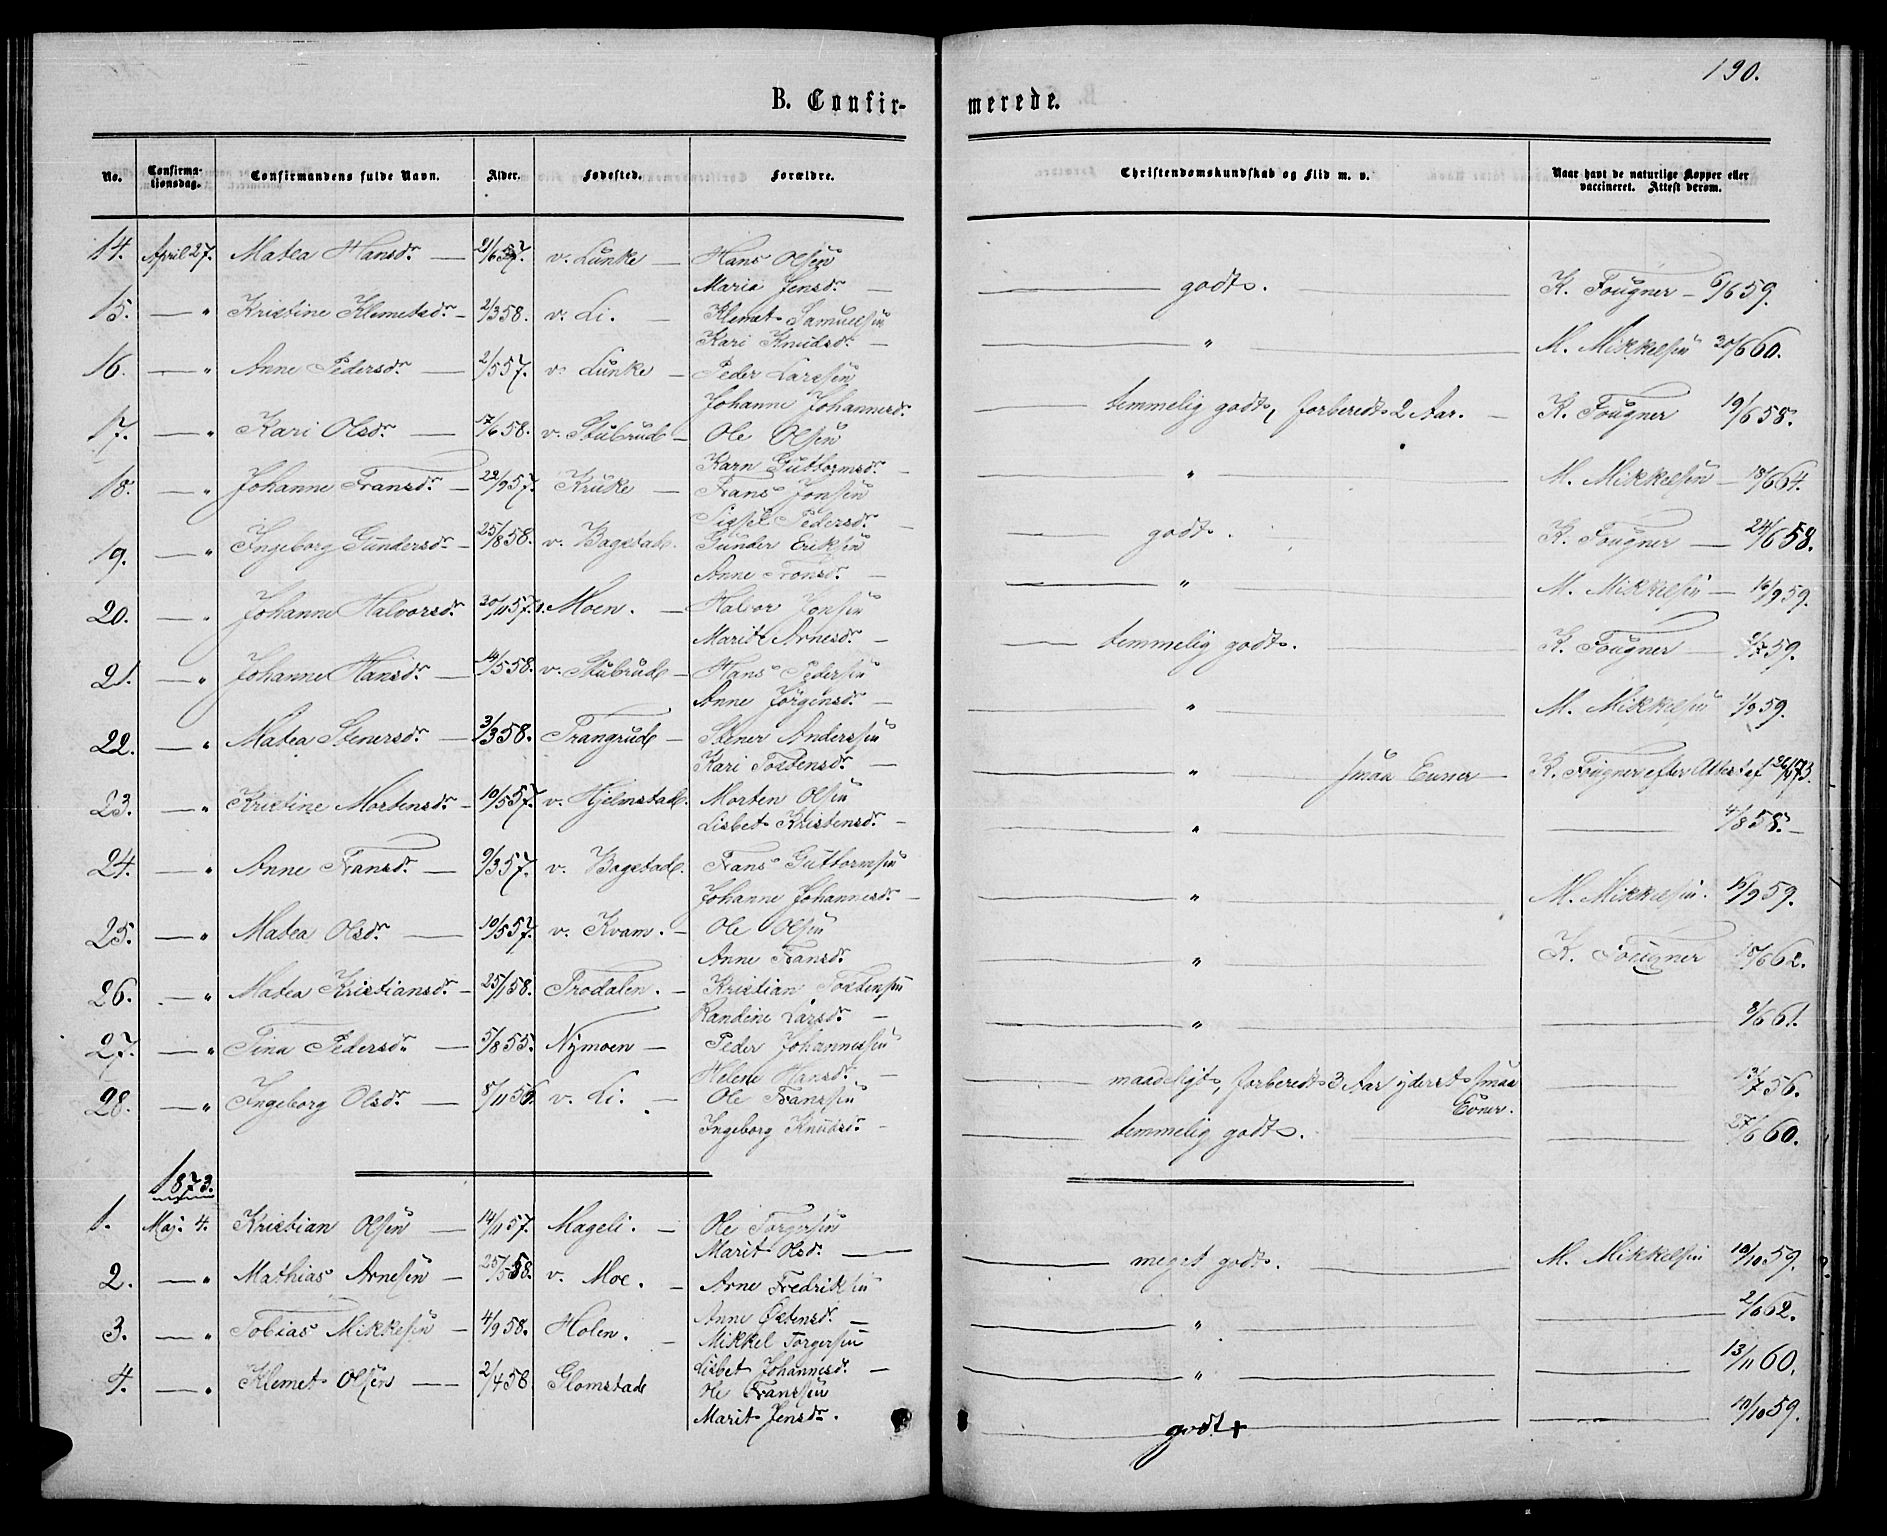 190.
B. Confirmerede.
No. Confirmationsdag. Confirmandens fulde Navn. Alder. Fødested. Forældre. Christendomskundskab og Flid m. v. Naar havt de naturlige Kopper eller vaccineret. Attest derom.
14. April 27. Matea Hansdr. — 21/6 57. v. Lunke — Hans Olsen
Maria Jensdr. — godt. — K. Fougner — 6/6 59.
15. — " Kristine Klemetsdr. — 2/3 58. v. Li. — Klemet Samuelsen
Kari Knudsdr. — " — M. Mikkelsen 20/6 60.
16. — " Anne Pedersdr. — 2/5 57. v. Lunke — Peder Larssen
Johanne Johannesdr. — temmelig godt, forberedt 2 Aar. — K. Fougner 19/6 58.
17. — " Kari Olsdr. — 7/6 58. v. Stubrud — Ole Olsen
Karn Guttormsdr. — " — M. Mikkelsen — 18/6 64.
18. — " Johanne Fransdr. — 22/9 57. Kruke — Frans Jonsen
Sissel Pedersdr. — godt. K. Fougner — 24/6 58.
19. — " Ingeborg Gundersdr. — 25/8 58. v. Bagstad. Gunder Eriksen
Anne Tronsdr. — " — M. Mikkelsen — 16/9 59.
20. — " Johanne Halvorsdr. 30/11 57. v. Moen. — Halvor Jonsen
Marit Arnesdr. — temmelig godt. K. Fougner — 59.
21. — " Johanne Hansdr. — 14/5 58. v. Stubrud — Hans Pedersen
Anne Jørgensdr. — " — M. Mikkelsen 1/9 59.
22. — " Matea Stenersdr. — 3/3 58. Trangrud — Stener Anderssen
Kari Tostensdr. — " smaa Evner — K. Fougner efter Attest af 26/4 73.
23. — " Kristine Mortensdr. — 10/5 57. v. Hjelmstad. Morten Olsen
Lisbet Kristensdr. — " — 4/8 58. —
24. — " Anne Fransdr. — 9/3 57. v. Bagstad. Frans Guttormsen
Johanne Johannesdr. — " — M. Mikkelsen. 15/9 59.
25. — " Matea Olsdr. — 10/5 57. v. Kvam. — Ole Olsen
Anne Fransdr. " K. Fougner 15/6 62.
26. — " Matea Kristiansdr. — 25/1 58. Trodalen. — Kristian Tostensen
Randine Larsdr. — " — 8/6 61.
27. — " Tina Pedersdr. — 5/8 55. Nymoen — Peder Johannessen
Helene Hansdr. — maadeligt, forberedt 3 Aar yderst smaa Evner. — 13/7 56.
28. — " Ingeborg Olsdr. — 8/11 56. v. Li. — Ole Franssen
Ingeborg Knudsdr. — temmelig godt. — 27/6 60.
1873.
1. Maj. 4. Kristian Olsen — 14/11 57. Mageli. — Ole Torgersen
Marit Olsdr. — meget godt. — M. Mikkelsen 10/10 59.
2. — " Mathias Arnesen — 25/5 58. v. Moe. — Arne Fredriksen
Anne Østensdr. — " — 2/10 62.
3. — " Tobias Mikkelsen — 4/9 58. Holen. — Mikkel Torgersen
Lisbet Johannesdr. — " — 13/11 60.
4. — " Klemet Olsen — 2/4 58 Glomstad Ole Franssen
Marit Jensdr. godt + — 10/10 59.